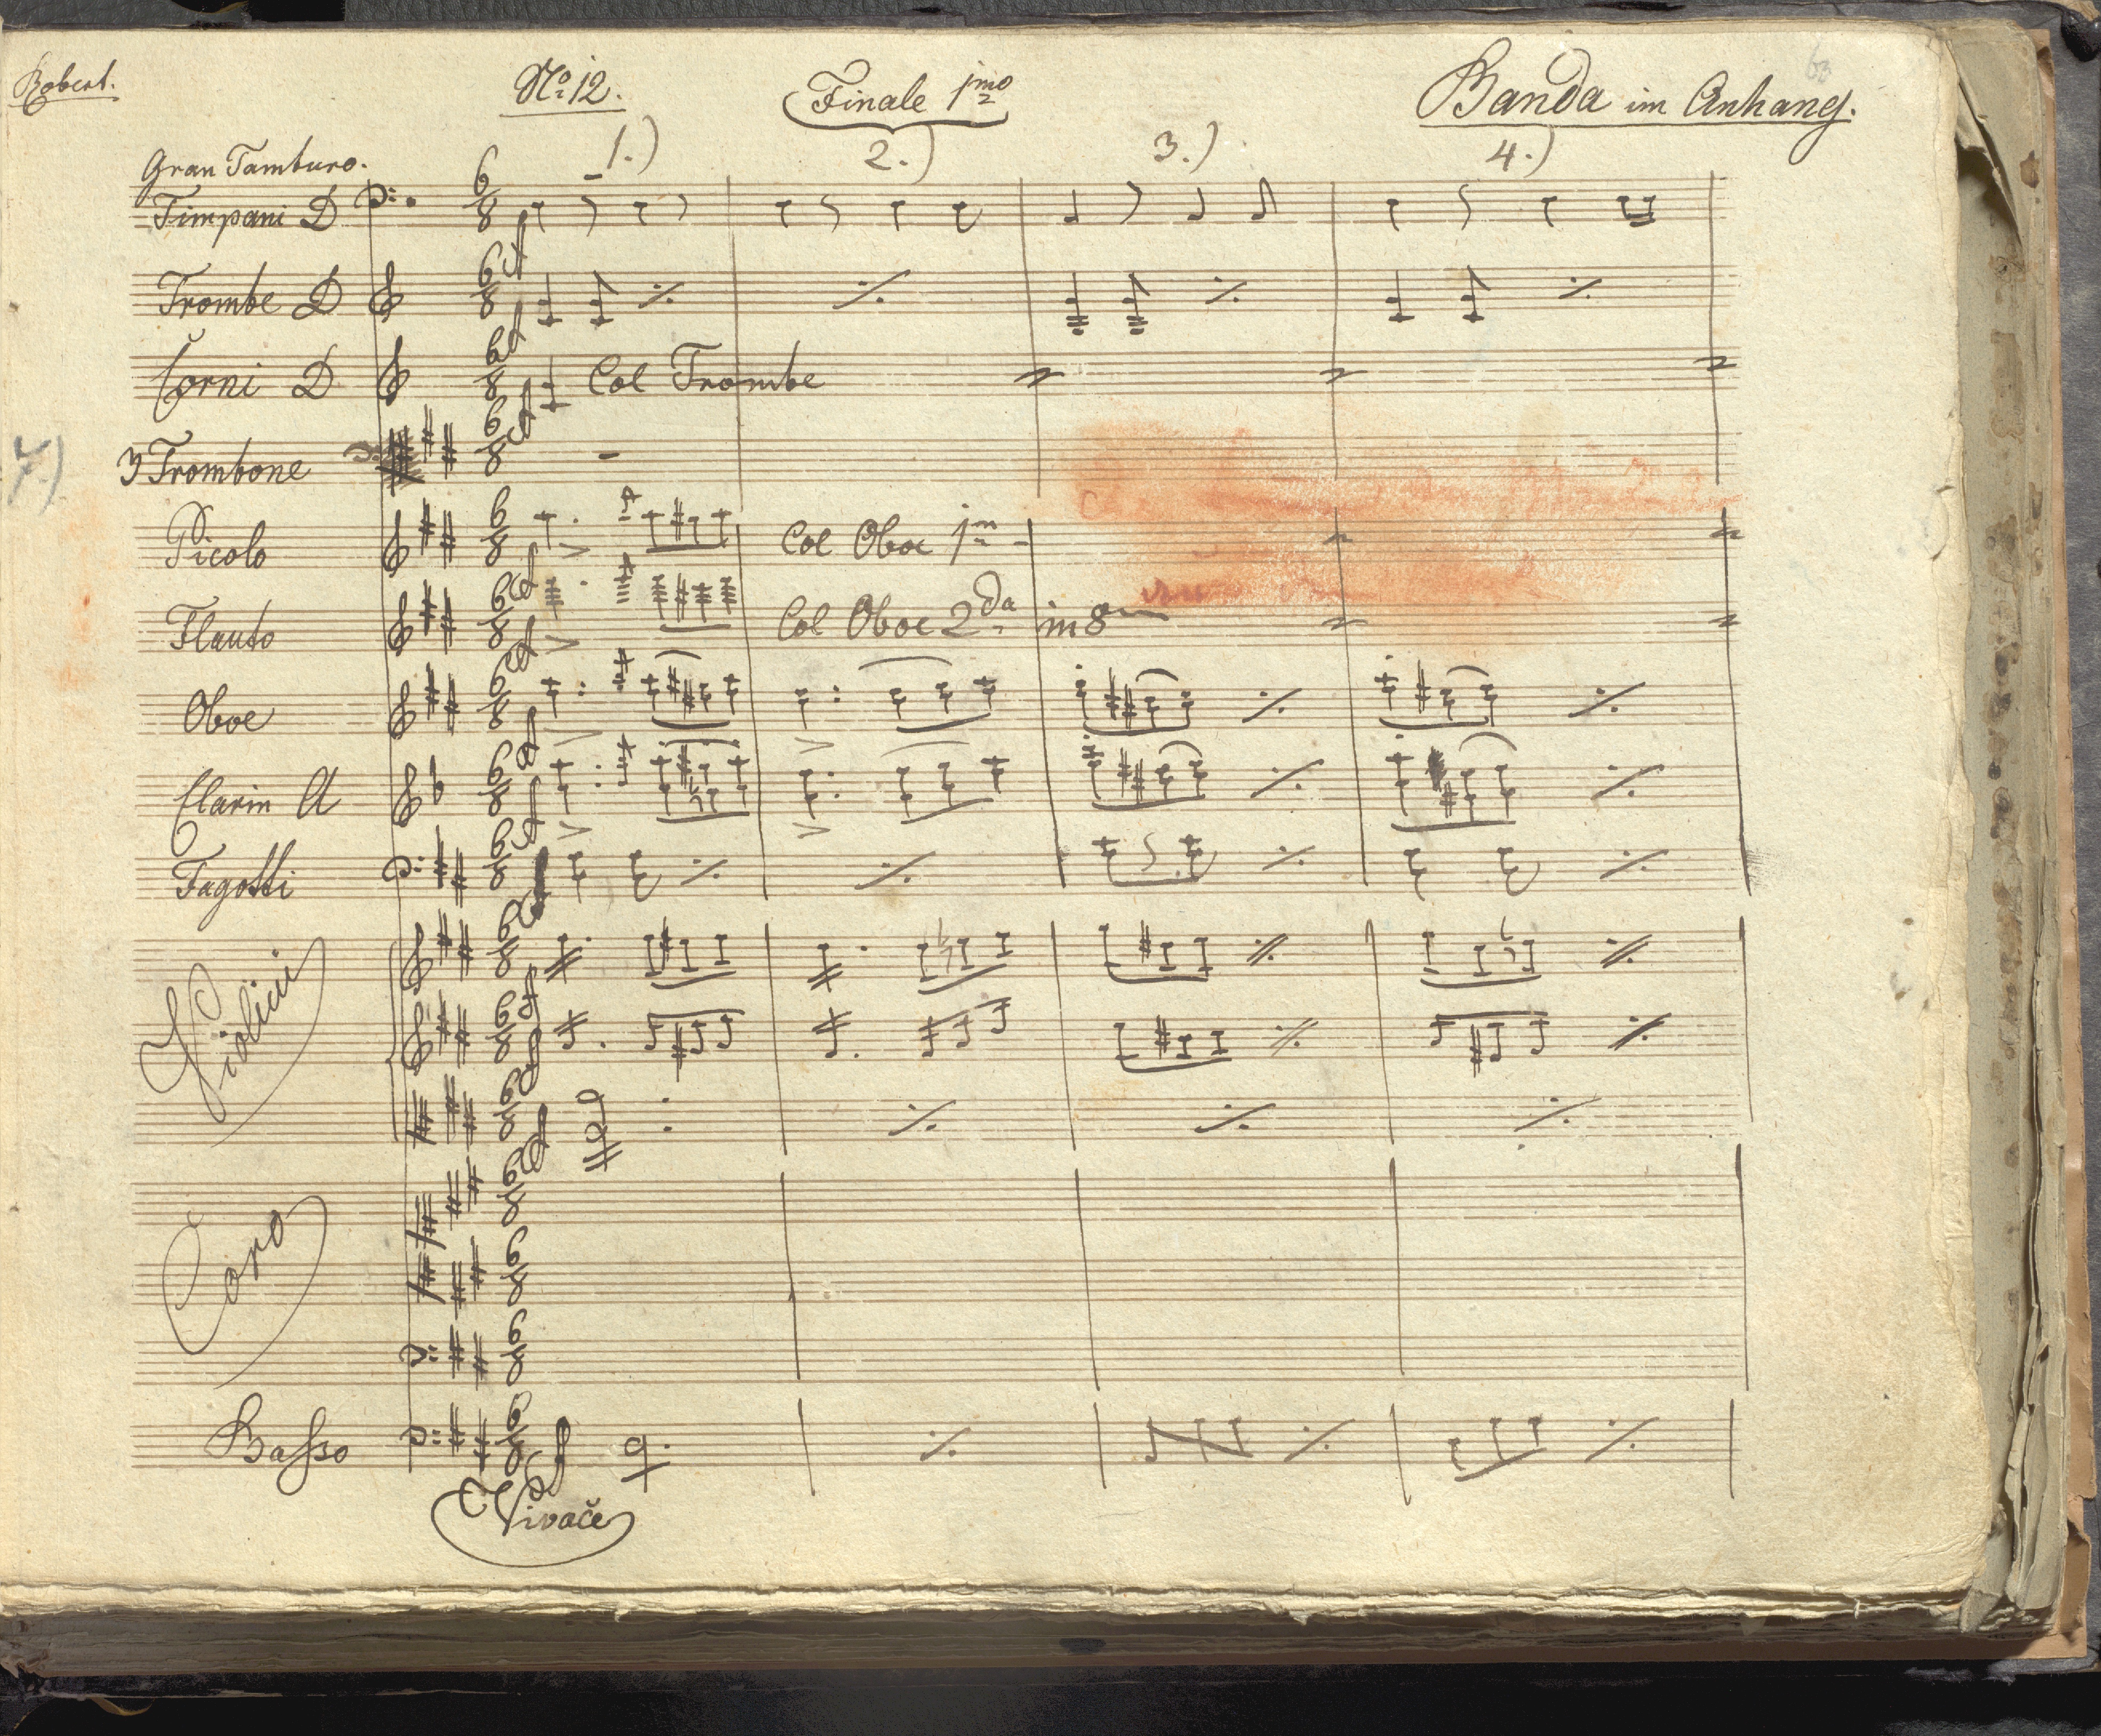 Robert.
No 12.
Finale 1mo
Banda im Anhang.
63
1.)
2.)
3.)
4.)
Gran Tamburo.
Timpani D
Trombe D
Corni D Col Trombe
7.)
3 Trombone
Picolo Col Oboe 1m
Flauto Col Oboe 2da in 8
Oboe
Clarin A
Fagotti
Violini
Coro
Basso
Vivače